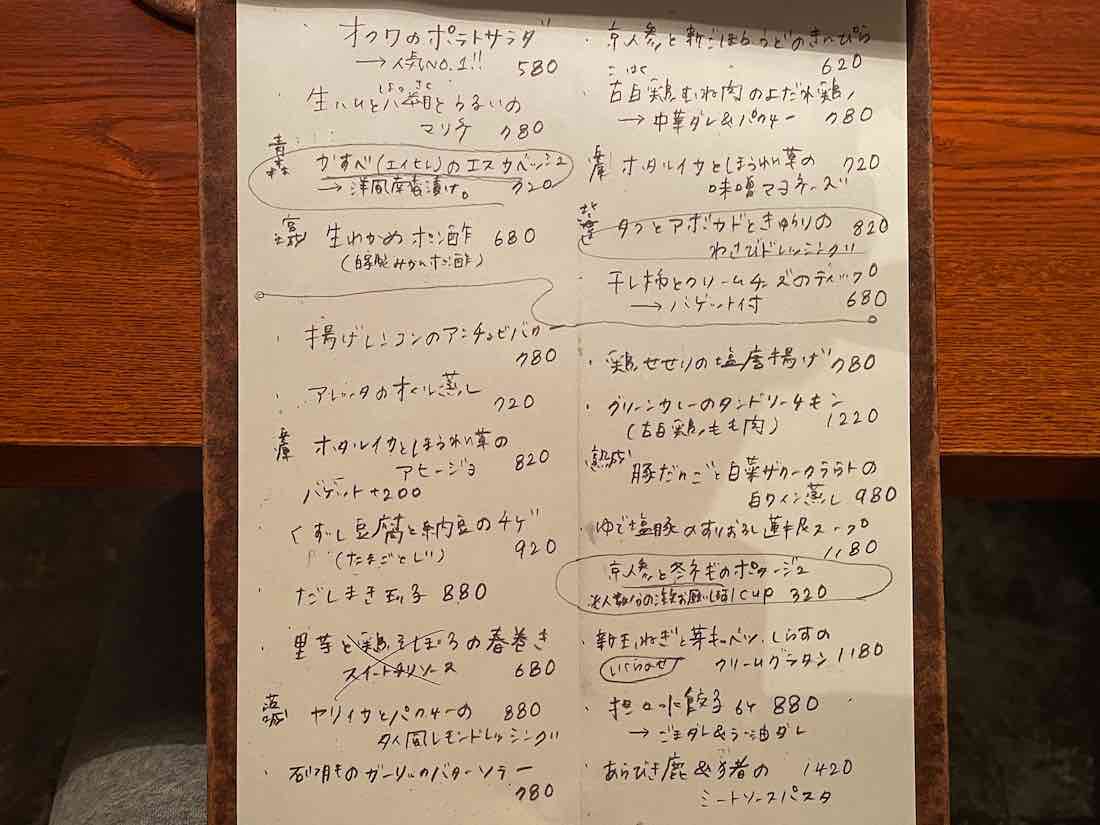 オクワのポテトサラダ
→人気NO.1!! 580
生ハムと八朔とうるいの
はっさく
マリネ 780
青森
かすべ(エイヒレ)のエスカベッシュ
→洋風南蛮漬け。 720
宮城
生わかめポン酢 680
(自家製みかんポン酢)
・揚げレンコンのアンチョビバター
780
・アレッタのオイル蒸し
720
兵庫
ホタルイカとほうれん草の
アヒージョ 820
バゲット+200
・くずし豆腐と納豆のチゲ
(たまごとじ) 920
・だしまき玉子 880
・里芋と鶏そぼろの春巻き
スイートチリソース 680
茨城
ヤリイカとパクチーの 880
タイ風レモンドレッシング
・砂肝のガーリックバターソテー
780
・京人参と新ごぼううどのきんぴら
620
こはく
・古白鶏むね肉のよだれ鶏
→中華ダレ&パクチー 780
兵庫
ホタルイカとほうれん草の 720
味噌マヨネーズ
タコとアボカドときゅうりの 820
わさびドレッシング
・干し柿とクリームチーズのディップ
→バゲット付 680
・鶏せせりの塩唐揚げ 780
・グリーンカレーのタンドリーチキン
(古白鶏もも肉) 1220
熟成
豚だんごと白菜ザワークラウトの
白ワイン蒸し 980
・ゆで塩豚のすりおろし蓮根スープ
1180
京人参と冬ネギのポタージュ
1cup 320
・新玉ねぎと芽キャベツ、しらすの
クリームグラタン 1180
・担々水餃子 6ケ 880
→ごまダレ&ラー油ダレ
・あらびき鹿&猪の 1420
ミートソースパスタ